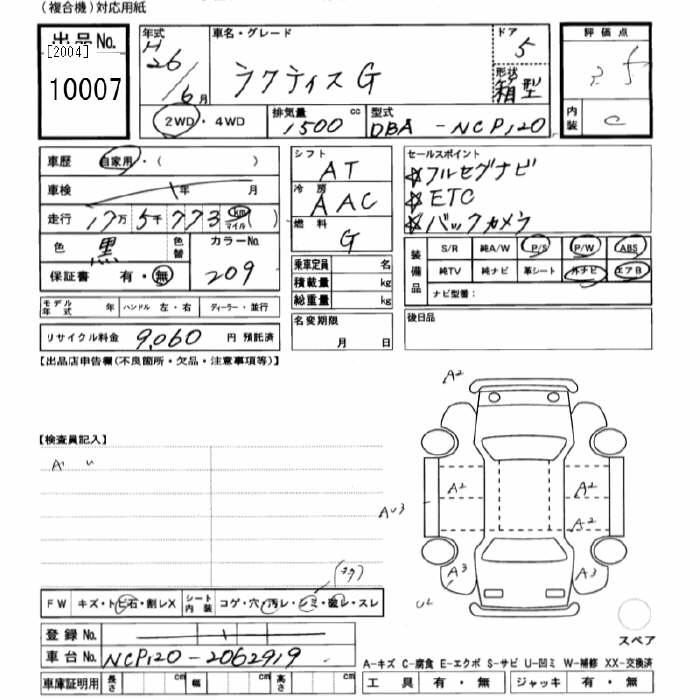 (複合機)対応用紙
出品No.
[2004]
10007
年式 H26/6月
車名・グレード ラクティスG
ドア 5
形状 箱型
2WD・4WD
排気量 1500 cc
型式 DBA-NCP120
評価点
内装 C
車歴 自家用・( )
車検 年 月
走行 17万5千773 km マイル ( )
色 黒 色替
カラーNo. 209
保証書 有・無
モデル年式 年 ハンドル 左・右 ディーラー・並行
リサイクル料金 9,060 円 預託済
シフト AT
冷房 AAC
燃料 G
乗車定員 名
積載量 kg
総重量 kg
名変期限 月 日
セールスポイント
☆フルセグナビ
☆ETC
☆バックカメラ
装備品
S/R 純A/W P/S P/W ABS
純TV 純ナビ 革シート 外ナビ エアB
ナビ型番:
後日品
【出品店申告欄(不良箇所・欠品・注意事項等)】
【検査員記入】
A2
A2
A2
A2
A3
FW キズ・トビ石・割レX シート内装 コゲ・穴・汚レ・シミ・破レ・スレ
登録No.
車台No. NCP120-2062919
車庫証明用 長さ cm 幅 cm 高さ cm
スペア
A-キズ C-腐食 E-エクボ S-サビ U-凹ミ W-補修 XX-交換済
工具 有・無 ジャッキ 有・無